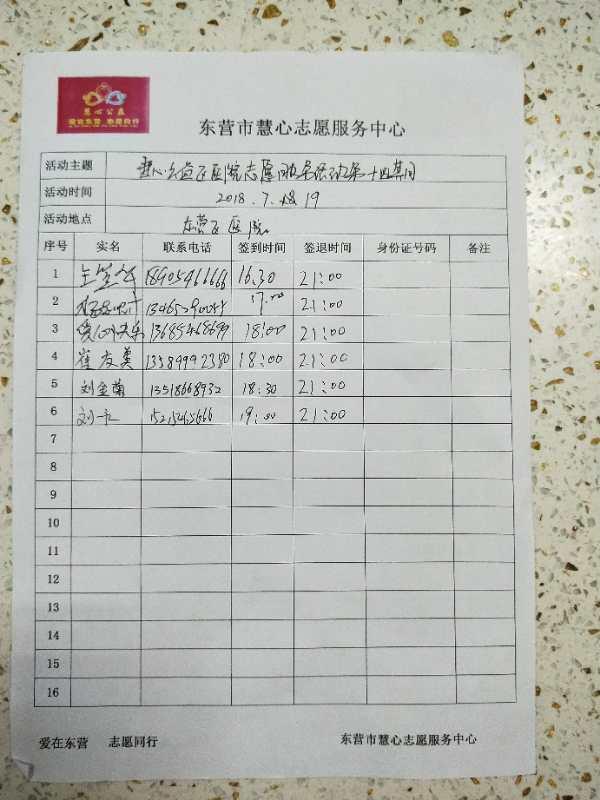 慧心公益
爱在东营 志愿同行
东营市慧心志愿服务中心
活动主题 慧心公益区医院志愿服务活动第十四期
活动时间 2018.7.19
活动地点 东营区医院
序号 实名 联系电话 签到时间 签退时间 身份证号码 备注
1 18905466666 16:30 21:00
2 17:00 21:00
3 13685468699 18:00 21:00
4 崔友英 13589992380 18:00 21:00
5 刘金菊 13518668932 18:30 21:00
6 刘一 19:00 21:00
7
8
9
10
11
12
13
14
15
16
爱在东营 志愿同行 东营市慧心志愿服务中心